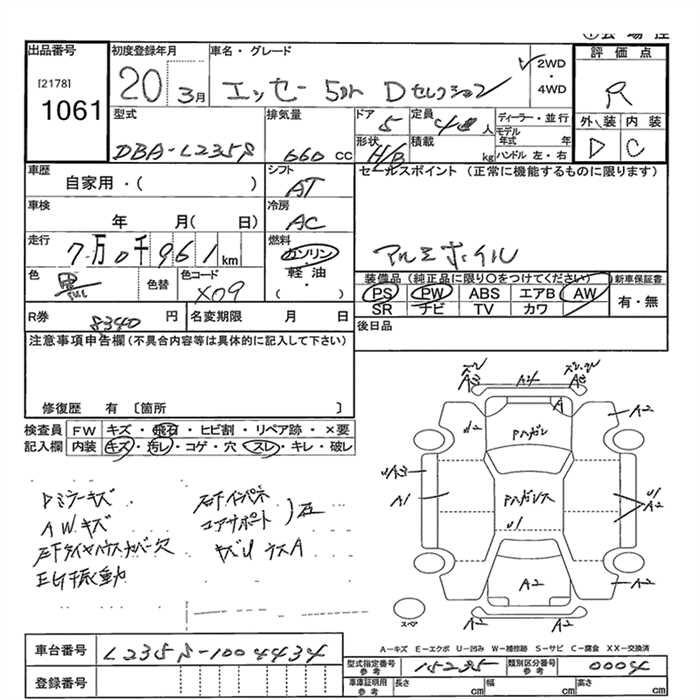 出品番号 初度登録年月 車名・グレード 評価点
[2178]
1061
20 3月 エッセ 5Dr Dセレクション ✓2WD・4WD R
外装 内装
D C
型式 排気量 ドア 定員 ディーラー・並行
DBA-L235S 660 cc 5 4 人 モデル年式 年
形状 積載 ハンドル 左・右
H/B kg
車歴 シフト セールスポイント(正常に機能するものに限ります)
自家用・( ) AT
車検 冷房
年 月( 日) AC
アルミホイル
走行 燃料
7万0千961km ガソリン・軽・油・( )
色 色替 色コード
X09
装備品(純正品に限り○をつけてください) 新車保証書
PS PW ABS エアB AW 有・無
SR ナビ TV カワ
R券 8340 円 名変期限 月 日 後日品
注意事項申告欄(不具合内容等は具体的に記入して下さい)
修復歴 有 〔箇所 〕
検査員 FW キズ・飛石・ヒビ割・リペア跡・×要
記入欄 内装 キズ・汚レ・コゲ・穴・スレ・キレ・破レ
A4
A
A2
W2
Pスガレ
UA3
A1
U1
A2
U1
A2
A2
A2
A2
A2
スペア
Dミラーキズ
AWキズ
EG振動
A-キズ E-エクボ U-凹み W-補修跡 S-サビ C-腐食 XX-交換済
車台番号 L235S-1004434
型式指定番号 参考 15235 類別区分番号 参考 0004
登録番号 車庫証明用 参考 長さ cm 幅 cm 高さ cm